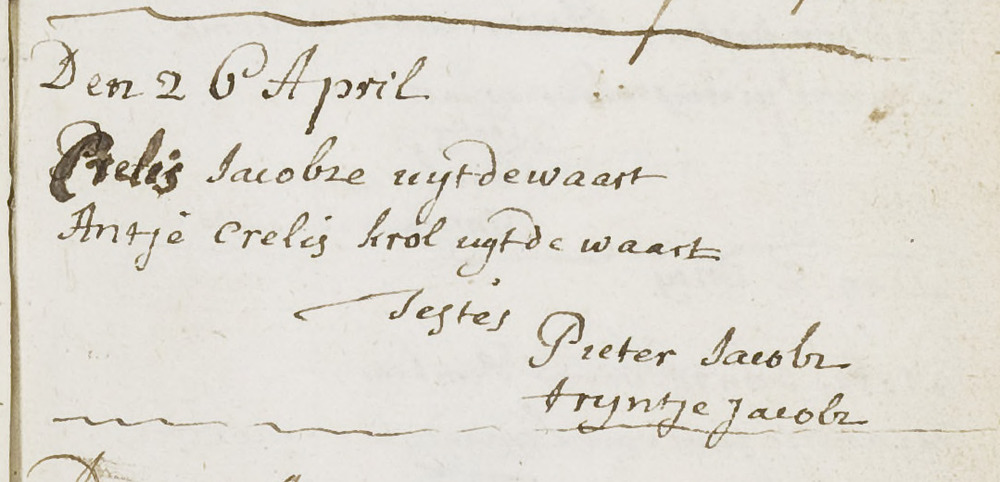 Den 26 April
Crelis Jacobze uytdewaart
Antje Crelis krol uytde waart
Testes
Pieter Jacobz
tryntje Jacobz